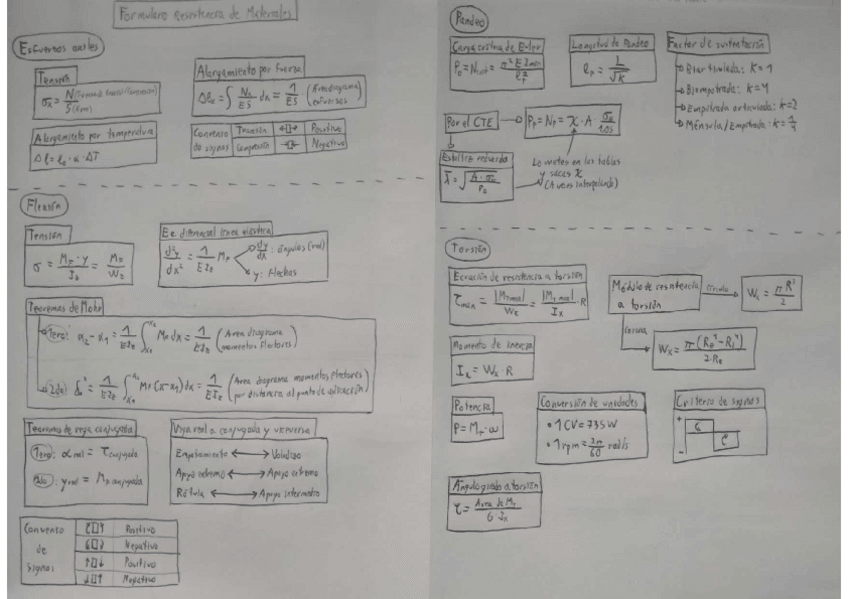 Formulario Resistencia de Materiales
Esfuerzos axiles
Tensión
Alargamiento por fuerza
Alargamiento por temperatura
Δl = l₀ · α · ΔT
Convenio de signos
Tracción Positivo
Compresión Negativo
Flexión
Tensión
σ = M_F · y / I_z = M_F / W_z
Ec. diferencial línea elástica
d²y/dx² = 1/(E I_z) M_F
dy/dx: ángulos (rad)
y: flechas
Teoremas de Mohr
1ero: α₂ - α₁ = 1/(E I_z) ∫ M_F dx = 1/(E I_z) (Área diagrama momentos flectores)
2do: δ = 1/(E I_z) ∫ M_F (x - x₁) dx = 1/(E I_z) (Área diagrama momentos flectores por distancia al punto de aplicación)
Teoremas de viga conjugada
1ero: α real = τ conjugada
2do: y real = M_F conjugada
Viga real a conjugada y viceversa
Empotramiento ↔ Voladizo
Apoyo extremo ↔ Apoyo extremo
Rótula ↔ Apoyo intermedio
Convenio de signos
Positivo
Negativo
Positivo
Negativo
Pandeo
Carga crítica de Euler
Longitud de Pandeo
l_p = L/√K
Factor de sustentación
Biarticulada: K = 1
Biempotrada: K = 4
Empotrada articulada: K = 2
Ménsula/Empotrada: K = 1/4
Por el CTE → P_P = N_P = χ · A · σ_e/1.05
Esbeltez reducida
λ̄ = √(A · σ_e / P_e)
Lo metes en las tablas
y sacas χ
(A veces interpolando)
Torsión
Ecuación de resistencia a torsión
τ_max = |M_T max| / W_x = |M_T max| / I_x · R
Módulo de resistencia a torsión
círculo
W_x = π R³ / 2
corona
W_x = π (R_e⁴ - R_i⁴) / 2·R_e
Momento de inercia
I_x = W_x · R
Potencia
P = M_T · ω
Conversión de unidades
• 1 CV = 735 W
• 1 rpm = 2π/60 rad/s
Criterio de signos
+
-
Ángulo girado a torsión
τ = Área de M_T / G · I_x